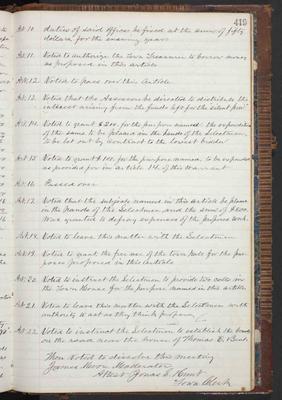 419
Art. 10. duties of said Officer be fixed at the sum of fifty
dollars for the ensuing year.
Art. 11. Voted to authorize the Town Treasurer to borrow money
as proposed in this article
Art. 12. Voted to pass over this Article.
Art. 13. Voted that the Assessors be directed to distribute the
interest arising from the funds left for the silent poor
Art. 14. Voted to grant $200 for the purpose named: the expenditure
of the same to be placed in the hands of the Selectmen
to be let out by contract to the lowest bidder
Art. 15 Voted to grant $100. for the purpose named, to be expended
as provided for in article 14 of this Warrant
Art. 16 Passed over
Art. 17. Voted that the subjects named in this article be placed
in the hands of the Selectmen, and the sum of
was granted to defray expenses of the proposed work.
Art. 18. Voted to leave this matter with the Selectmen
Art. 19. Voted to grant the free use of the Town Hall for the pur-
poses proposed in this article
Art. 20 Voted to instruct the Selectmen to provide two in
the Town House for the purpose named in this article
Art. 21. Voted to leave this matter with the Selectmen with
authority to act as they think proper
Art. 22. Voted to instruct the Selectmen to establish the bounds
on the road near the house of Thomas E. Bent
Then Voted to dissolve this meeting
James Moderator
Attest Jonas S. Hunt
Town Clerk